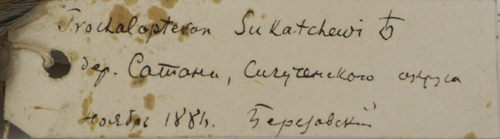 Trochalopteron Sukatchewi ♁
дер. Сатани, Сигученского округа
ноябрь 188 г. Березовский